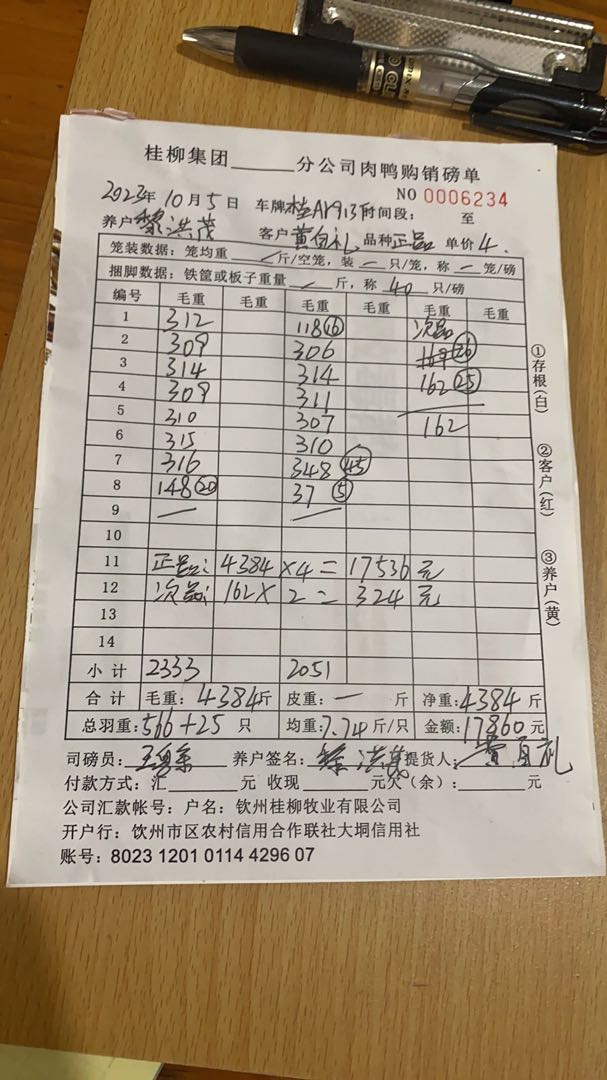 桂柳集团______分公司肉鸭购销磅单
NO 0006234
2023年 10月5日 车牌 桂AY913 时间段: 至
养户 黎洪茂 客户 黄自礼 品种 正品 单价 4.
笼装数据: 笼均重 — 斤/空笼, 装 — 只/笼, 称 — 笼/磅
捆脚数据: 铁筐或板子重量 — 斤, 称 40 只/磅
编号 毛重 毛重 毛重 毛重 毛重 毛重
1 312 118(16) 次品
2 309 306 169(26)
3 314 314 162(25)
4 309 311
5 310 307 162
6 315 310
7 316 348(45)
8 148(20) 37(5)
9 — —
10
11 正品: 4384×4= 17536元
12 次品: 162×2= 324元
13
14
小计 2333 2051
合计 毛重: 4384斤 皮重: — 斤 净重: 4384斤
总羽重: 566+25 只 均重: 7.74斤/只 金额: 17860元
司磅员: 养户签名: 提货人: 黄自礼
付款方式: 汇______元 收现______元欠(余): ______元
公司汇款帐号: 户名: 钦州桂柳牧业有限公司
开户行: 钦州市区农村信用合作联社大垌信用社
账号: 8023 1201 0114 4296 07
①存根(白)
②客户(红)
③养户(黄)